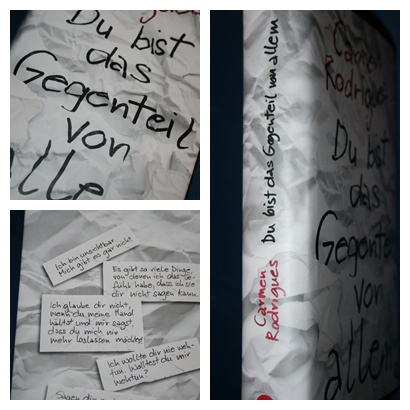 Du bist
das
Gegenteil
von
alle
Carmen
Rodrigues
Du bist das Gegenteil von allem
Carmen
Rodrigues
Du bist
das
Gegenteil
von
allem
Ich bin unsichtbar.
Mich gibt es gar nicht.
Es gibt so viele Dinge,
von denen ich das Ge-
fühl habe, dass ich sie
dir nicht sagen kann.
Ich glaube dir nicht,
wenn du meine Hand
hältst und mir sagst,
dass du mich nie
mehr loslassen möchtest
Ich wollte dir nie weh-
tun. Wolltest du mir
wehtun?